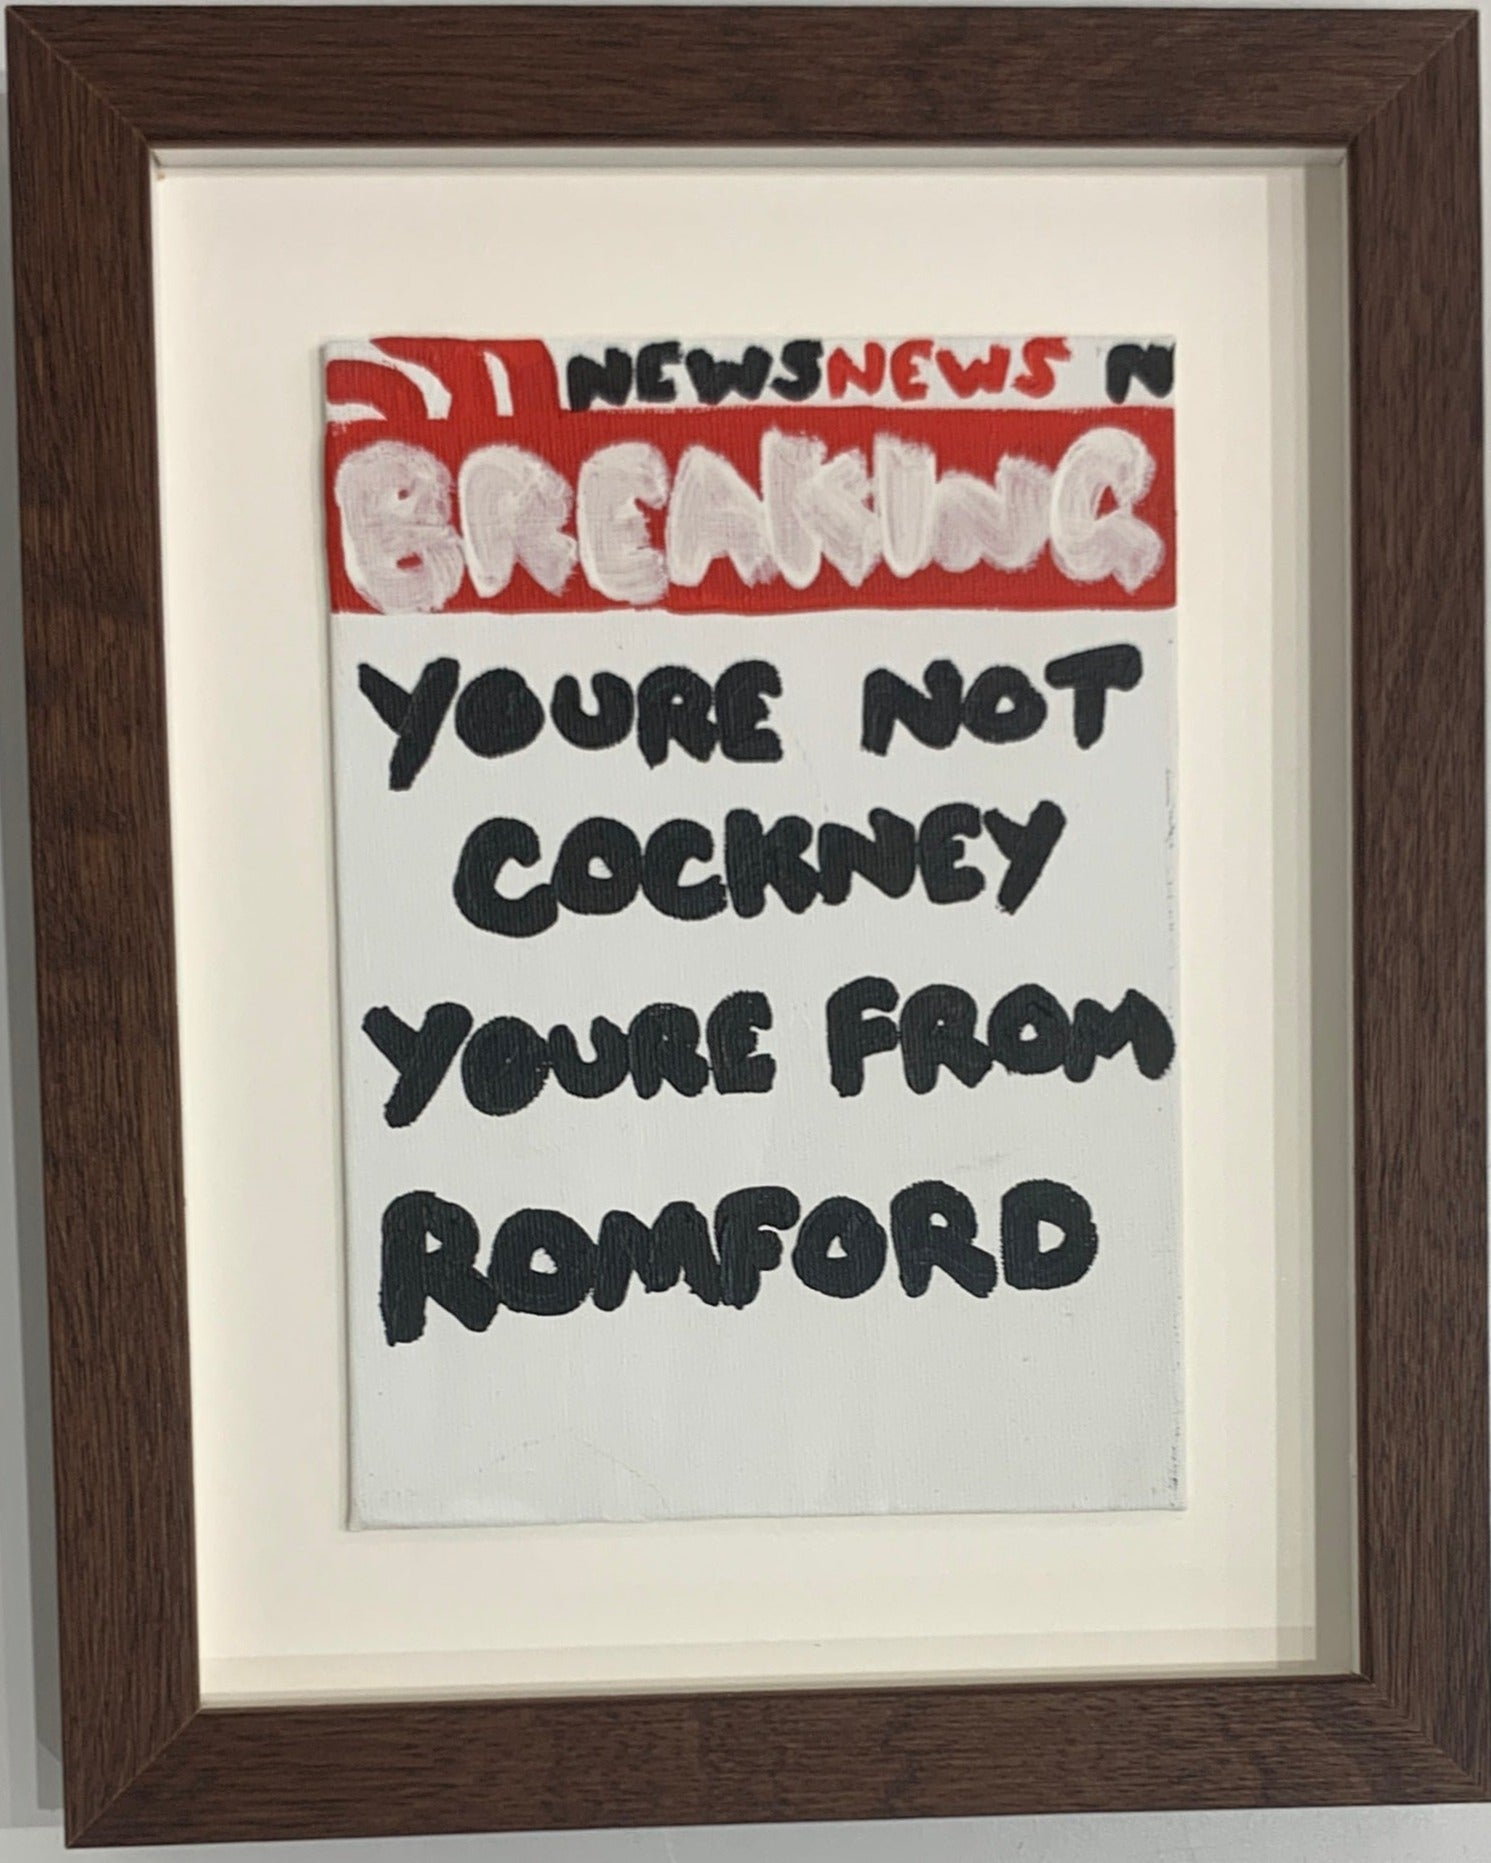 NEWSNEWS N
BREAKING
YOURE NOT
COCKNEY
YOURE FROM
ROMFORD